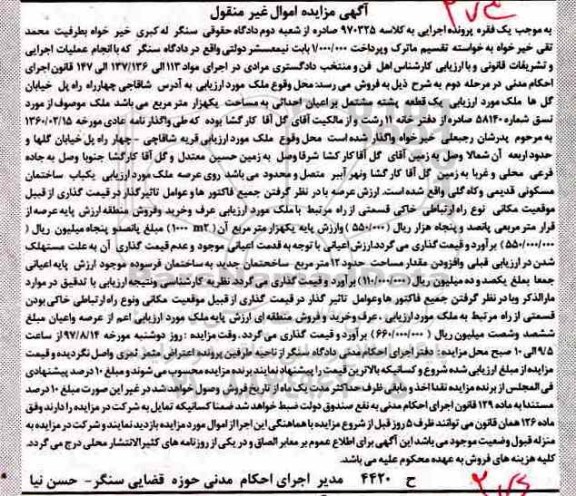 آگهی مزایده اموال غیر منقول
به موجب یک فقره پرونده اجرایی به کلاسه ۹۷۰۳۲۵ صادره از شعبه دوم دادگاه حقوقی سنگر له کبری خیر خواه بطرفیت محمد
تقی خیر خواه به خواسته تقسیم ماترک وپرداخت ۱/۰۰۰/۰۰۰ بابت نیمعسشر دولتی واقع در دادگاه سنگر که با انجام عملیات اجرایی
و تشریفات قانونی و با ارزیابی کارشناس اهل فن و منتخب دادگستری مرادی در اجرای مواد ۱۱۳ الی ۱۳۷/۱۳۶ الی ۱۴۷ قانون اجرای
احکام مدنی در مرحله دوم به شرح ذیل به فروش می رسد: محل وقوع ملک مورد ارزیابی به آدرس شاقاجی چهارراه راه پل خیابان
گل ها ملک مورد ارزیابی یک قطعه پشته مشتمل بر اعیان احداثی به مساحت یکهزار متر مربع می باشد ملک موصوف از مورد
نسق شماره ۵۸۱۴۰ صادره از دفتر خانه ۱۱ رشت و از مالکیت آقای گل آقا کارگشا بوده که طی واگذارنامه عادی مورخه ۱۳۶۰/۰۲/۱۵
به مرحوم پدرشان رجبعلی خیر خواه واگذار شده است محل وقوع ملک مورد ارزیابی قریه شاقاچی - چهار راه پل خیابان گلها و
حدود اربعه آن شمالا وصل به زمین آقای گل آقا کار گشا شرقا وصل به زمین حسین معتدل و گل آقا کارگشا جنوبا وصل به جاده
فرعی محلی و غربا به زمین گل آقا کار گشا ونهر آببر متصل و محدود می باشد روی عرصه ملک مورد ارزیابی یکباب ساختمان
مسکونی قدیمی و کاه گلی واقع شده است. ارزش عرصه با در نظر گرفتن جمیع فاکتور ها و عوامل تاثیر گذار در قیمت گذاری از قبیل
موقعیت مکانی نوع راه ارتباطی خاکی قسمتی از راه مرتبط با ملک مورد ارزیابی عرف وخرید وفروش منطقه ارزش پایه عرصه از
قرار متر مربعی پانصد و پنجاه هزار ریال (۵۵۰/۰۰۰) وارزش پایه یکهزار متر مربع آن (۱۰۰۰ m2) مبلغ پانصدو پنجاه میلیون ریال (
۵۵۰/۰۰۰/۰۰۰) برآورد و قیمت گذاری می گردد ارزش اعیانی با توجه به قدمت اعیانی موجود و عدم قیمت گذاری آن به علت مستهلک
شدن در ارزیابی قبلی وافزودن مقدار مساحت حدود ۱۲ متر مربع ساختمان جدید به ساختمان فرسوده موجود ارزش پایه اعیانی
جمعا بملغ یکصد و ده میلیون ریال (۱۱۰/۰۰۰/۰۰۰) برآورد و قیمت گذاری می گردد. نظریه کارشناسی ونتیجه ارزیابی با تدقیق در موارد
مارالذکر وبا در نظر گرفتن جمیع فاکتور ها وعوامل تاثیر گذار در قیمت گذاری از قبیل موقعیت مکانی ونوع راه ارتباطی خاکی بودن
قسمتی از راه مرتبط به ملک مورد ارزیابی، عرف وخرید و فروش منطقه ای ارزش پایه ملک مورد ارزیابی اعم از عرصه واعیان مبلغ
ششصد وشصت میلیون ریال (۶۶۰/۰۰۰/۰۰۰) برآورد و قیمت گذاری می گردد. وقت مزایده: روز دوشنبه مورخه ۹۷/۸/۱۴ از ساعت
۹/۵ الی ۱۰ صبح محل مزایده: دفتر اجرای احکام مدنی دادگاه سنگر از ناحیه طرفین پرونده اعتراض مثمر ثمری واصل نگردیده و قیمت
مزایده از مبلغ ارزیابی شده شروع و کسانیکه بالاترین قیمت را پیشنهاد نمایند برنده مزایده محسوب می شوند و مبلغ ۱۰ درصد پیشنهادی
فی المجلس از برنده مزایده نقدا اخذ و مابقی ظرف حداکثر مدت یک ماه از تاریخ فروش وصول خواهد شد در غیر این صورت مبلغ ۱۰ درصد
مستندا به ماده ۱۲۹ قانون اجرای احکام مدنی به نفع صندوق دولت ضبط خواهد شد ضمنا کسانیکه تمایل به شرکت در مزایده را دارند وفق
ماده ۱۲۶ همان قانون می توانند ظرف ۵ روز قبل از شروع مزایده با هماهنگی این اجرا از اموال مورد مزایده بازدید نمایند و شرکت در مزایده به
منزله قبول وضعیت موجود می باشد این آگهی برای اطلاع عموم بر معابر الصاق و در یکی از روزنامه های کثیرالانتشار محلی درج می گردد.
کلیه هزینه های فروش به عهده محکوم علیه می باشد.
ح ۴۴۲۰ مدیر اجرای احکام مدنی حوزه قضایی سنگر - حسن نیا